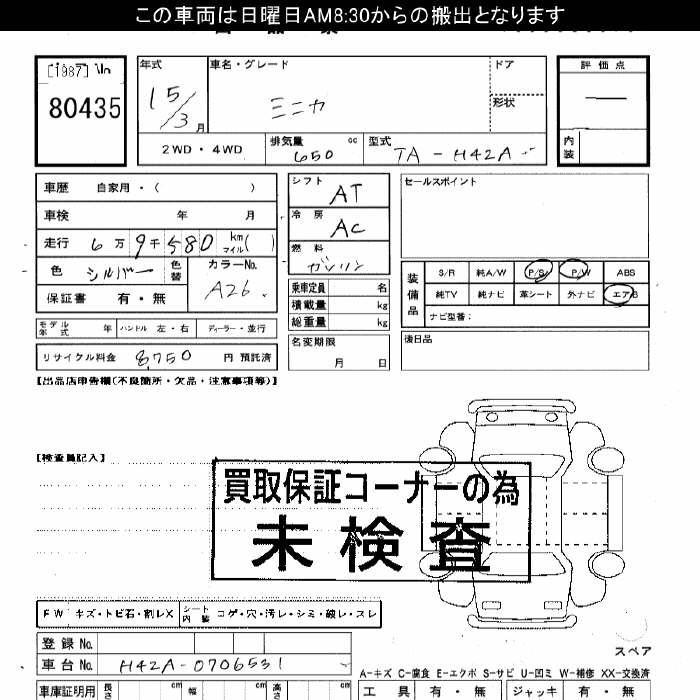 この車両は日曜日AM8:30からの搬出となります
[1987] 1/11
80435
年式
15/3月
車名・グレード
ミニカ
ドア
形状
評価点
内装
2WD・4WD
排気量 650 cc
型式 TA-H42A
車歴 自家用・( )
車検 年 月
走行 6万9千580 km マイル( )
色 シルバー 色替
カラーNo. A26
保証書 有・無
シフト AT
冷房 AC
燃料 ガソリン
乗車定員 名
積載量 kg
総重量 kg
セールスポイント
装備品
S/R 純A/W P/S P/W ABS
純TV 純ナビ 革シート 外ナビ エアB
ナビ型番:
モデル年式 年 ハンドル 左・右 ディーラー・並行
リサイクル料金 8,750 円 預託済
名変期限 月 日
後日品
【出品店申告欄(不良箇所・欠品・注意事項等)】
【検査員記入】
買取保証コーナーの為
未検査
FW キズ・トビ石・割レX シート内装 コゲ・穴・汚レ・シミ・破レ・スレ
登録No.
車台No. H42A-0706531
スペア
A-キズ C-腐食 E-エクボ S-サビ U-凹ミ W-補修 XX-交換済
車庫証明用 長さ cm 幅 cm 高さ cm
工具 有・無 ジャッキ 有・無